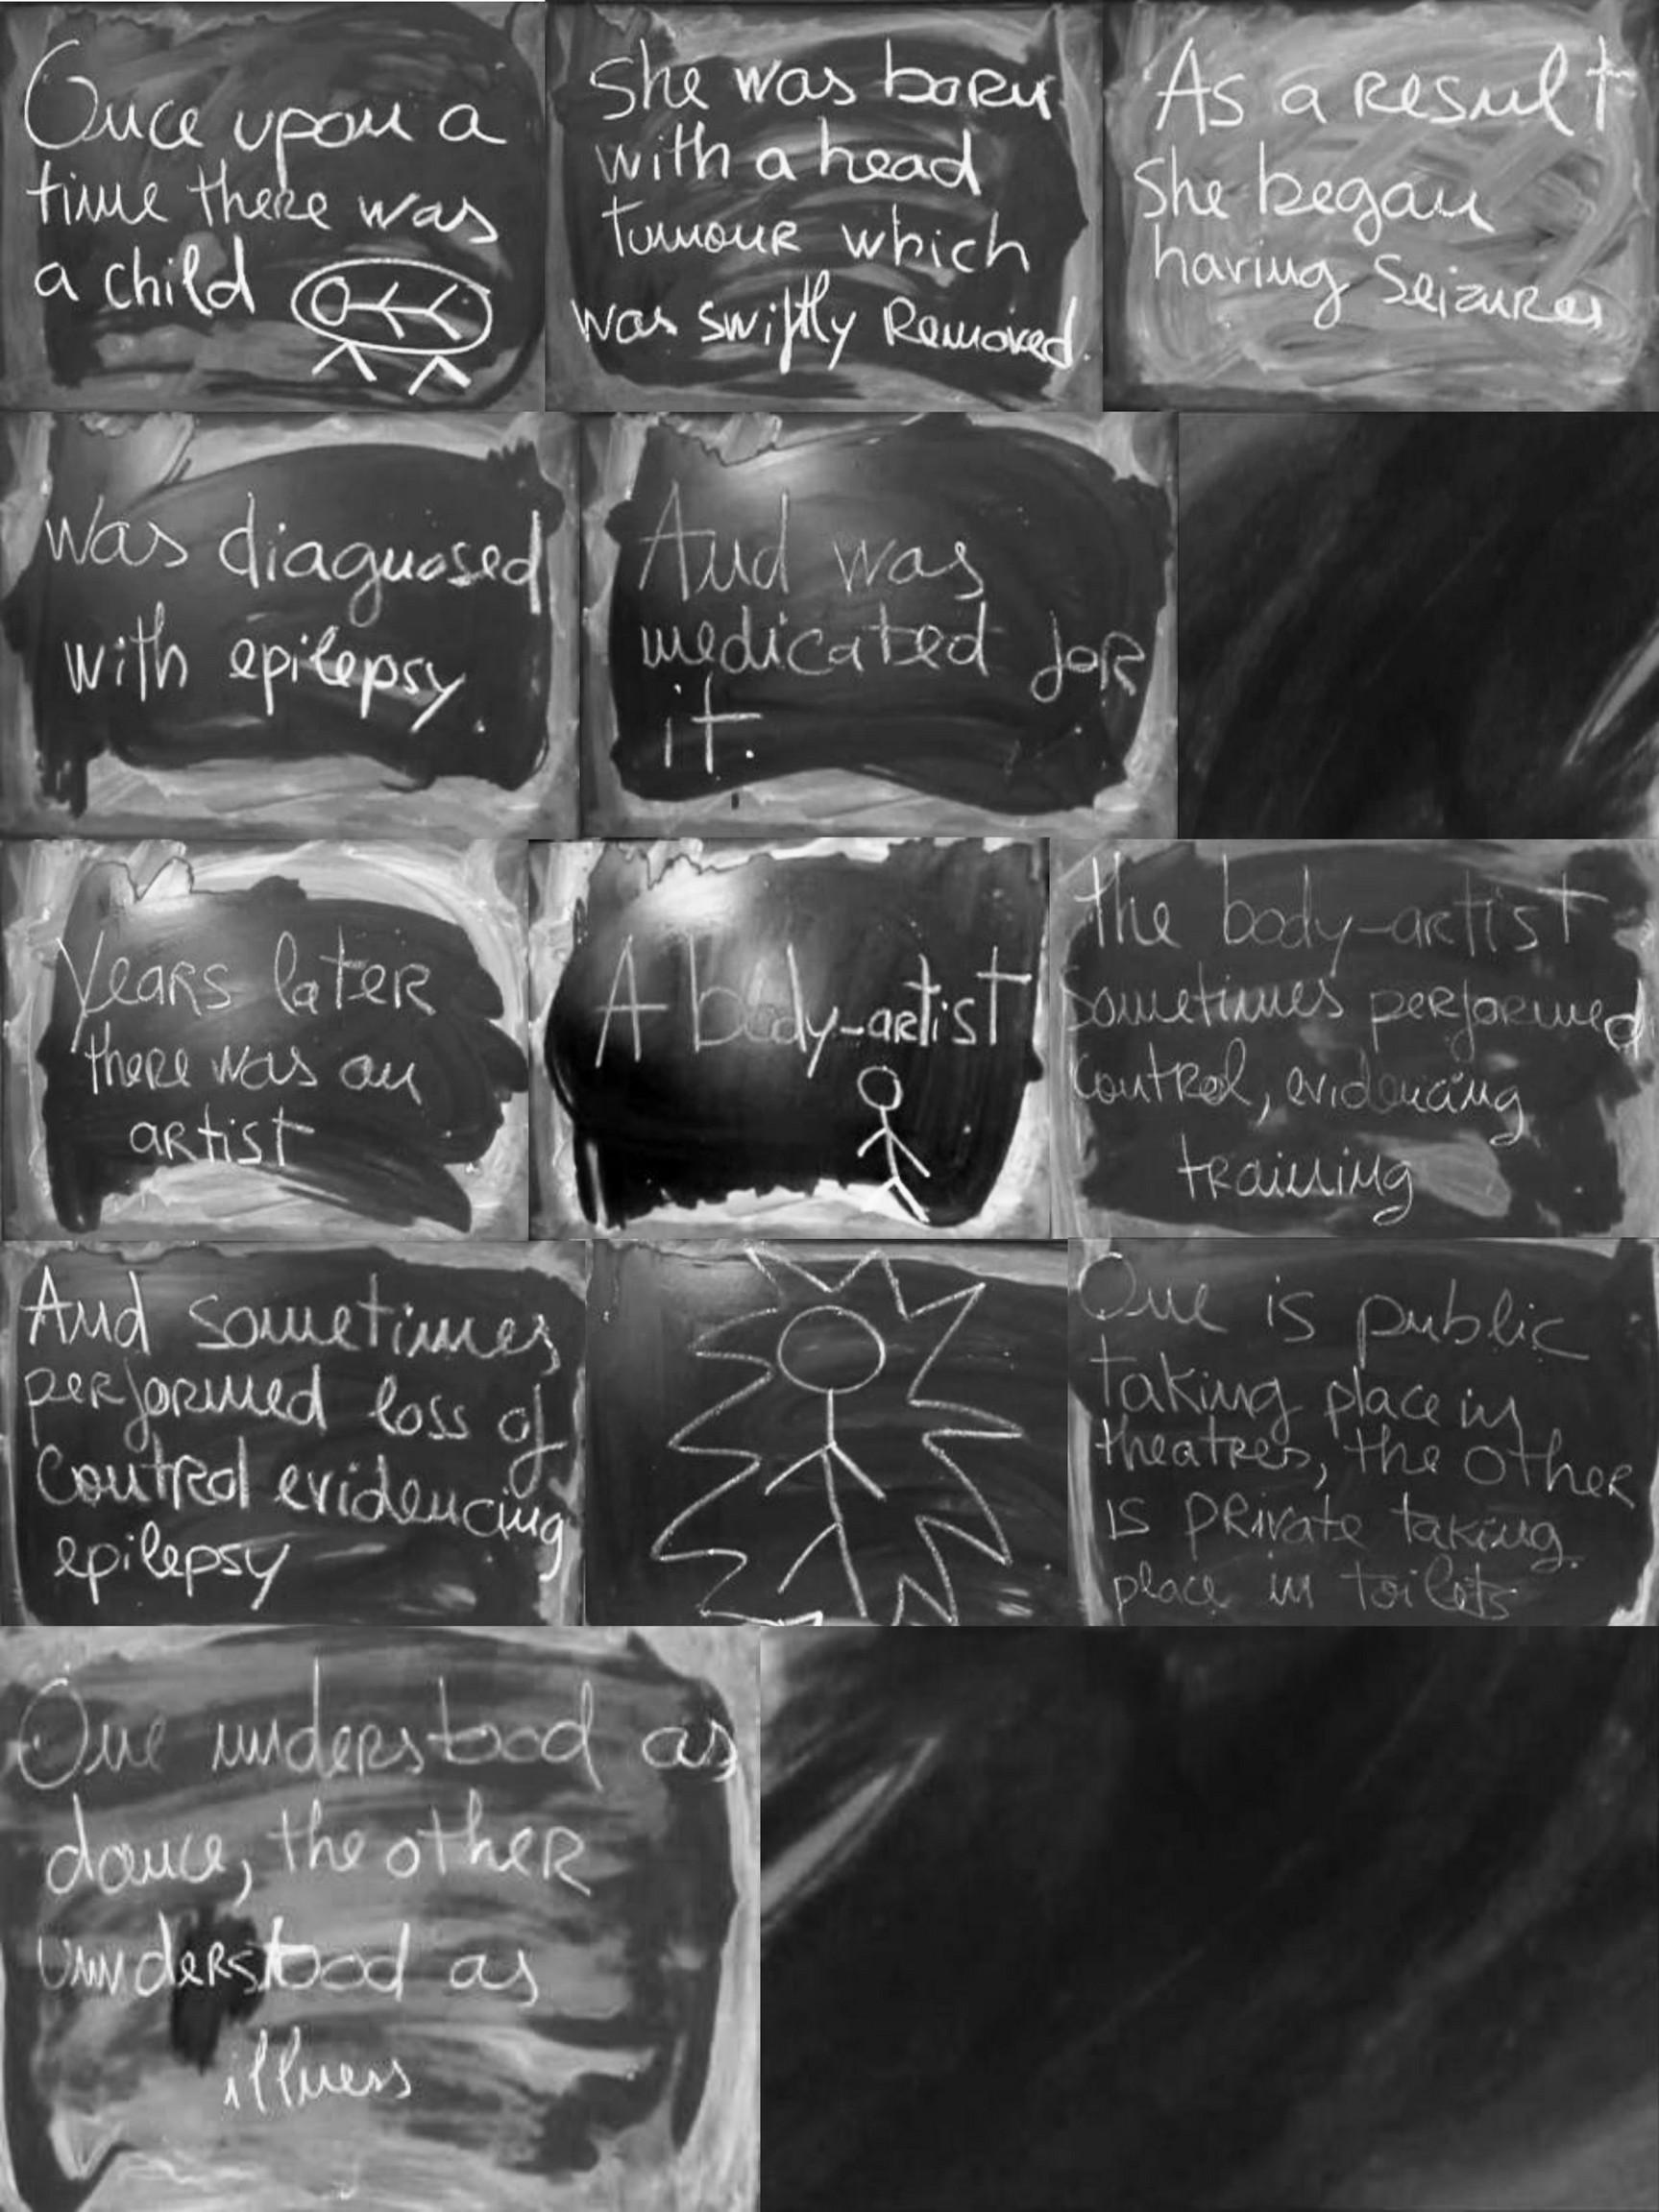 Once upon a
time there was
a child
She was born
with a head
tumour which
was swiftly Removed.
As a result
She began
having seizures
was diagnosed
with epilepsy.
And was
medicated for
it.
Years later
there was an
artist
A body-artist
the body-artist
sometimes performed
control, evidencing
training
And sometimes
performed loss of
control evidencing
epilepsy
One is public
taking place in
theatres, the other
is private taking
place in toilets
One understood as
dance, the other
understood as
illness